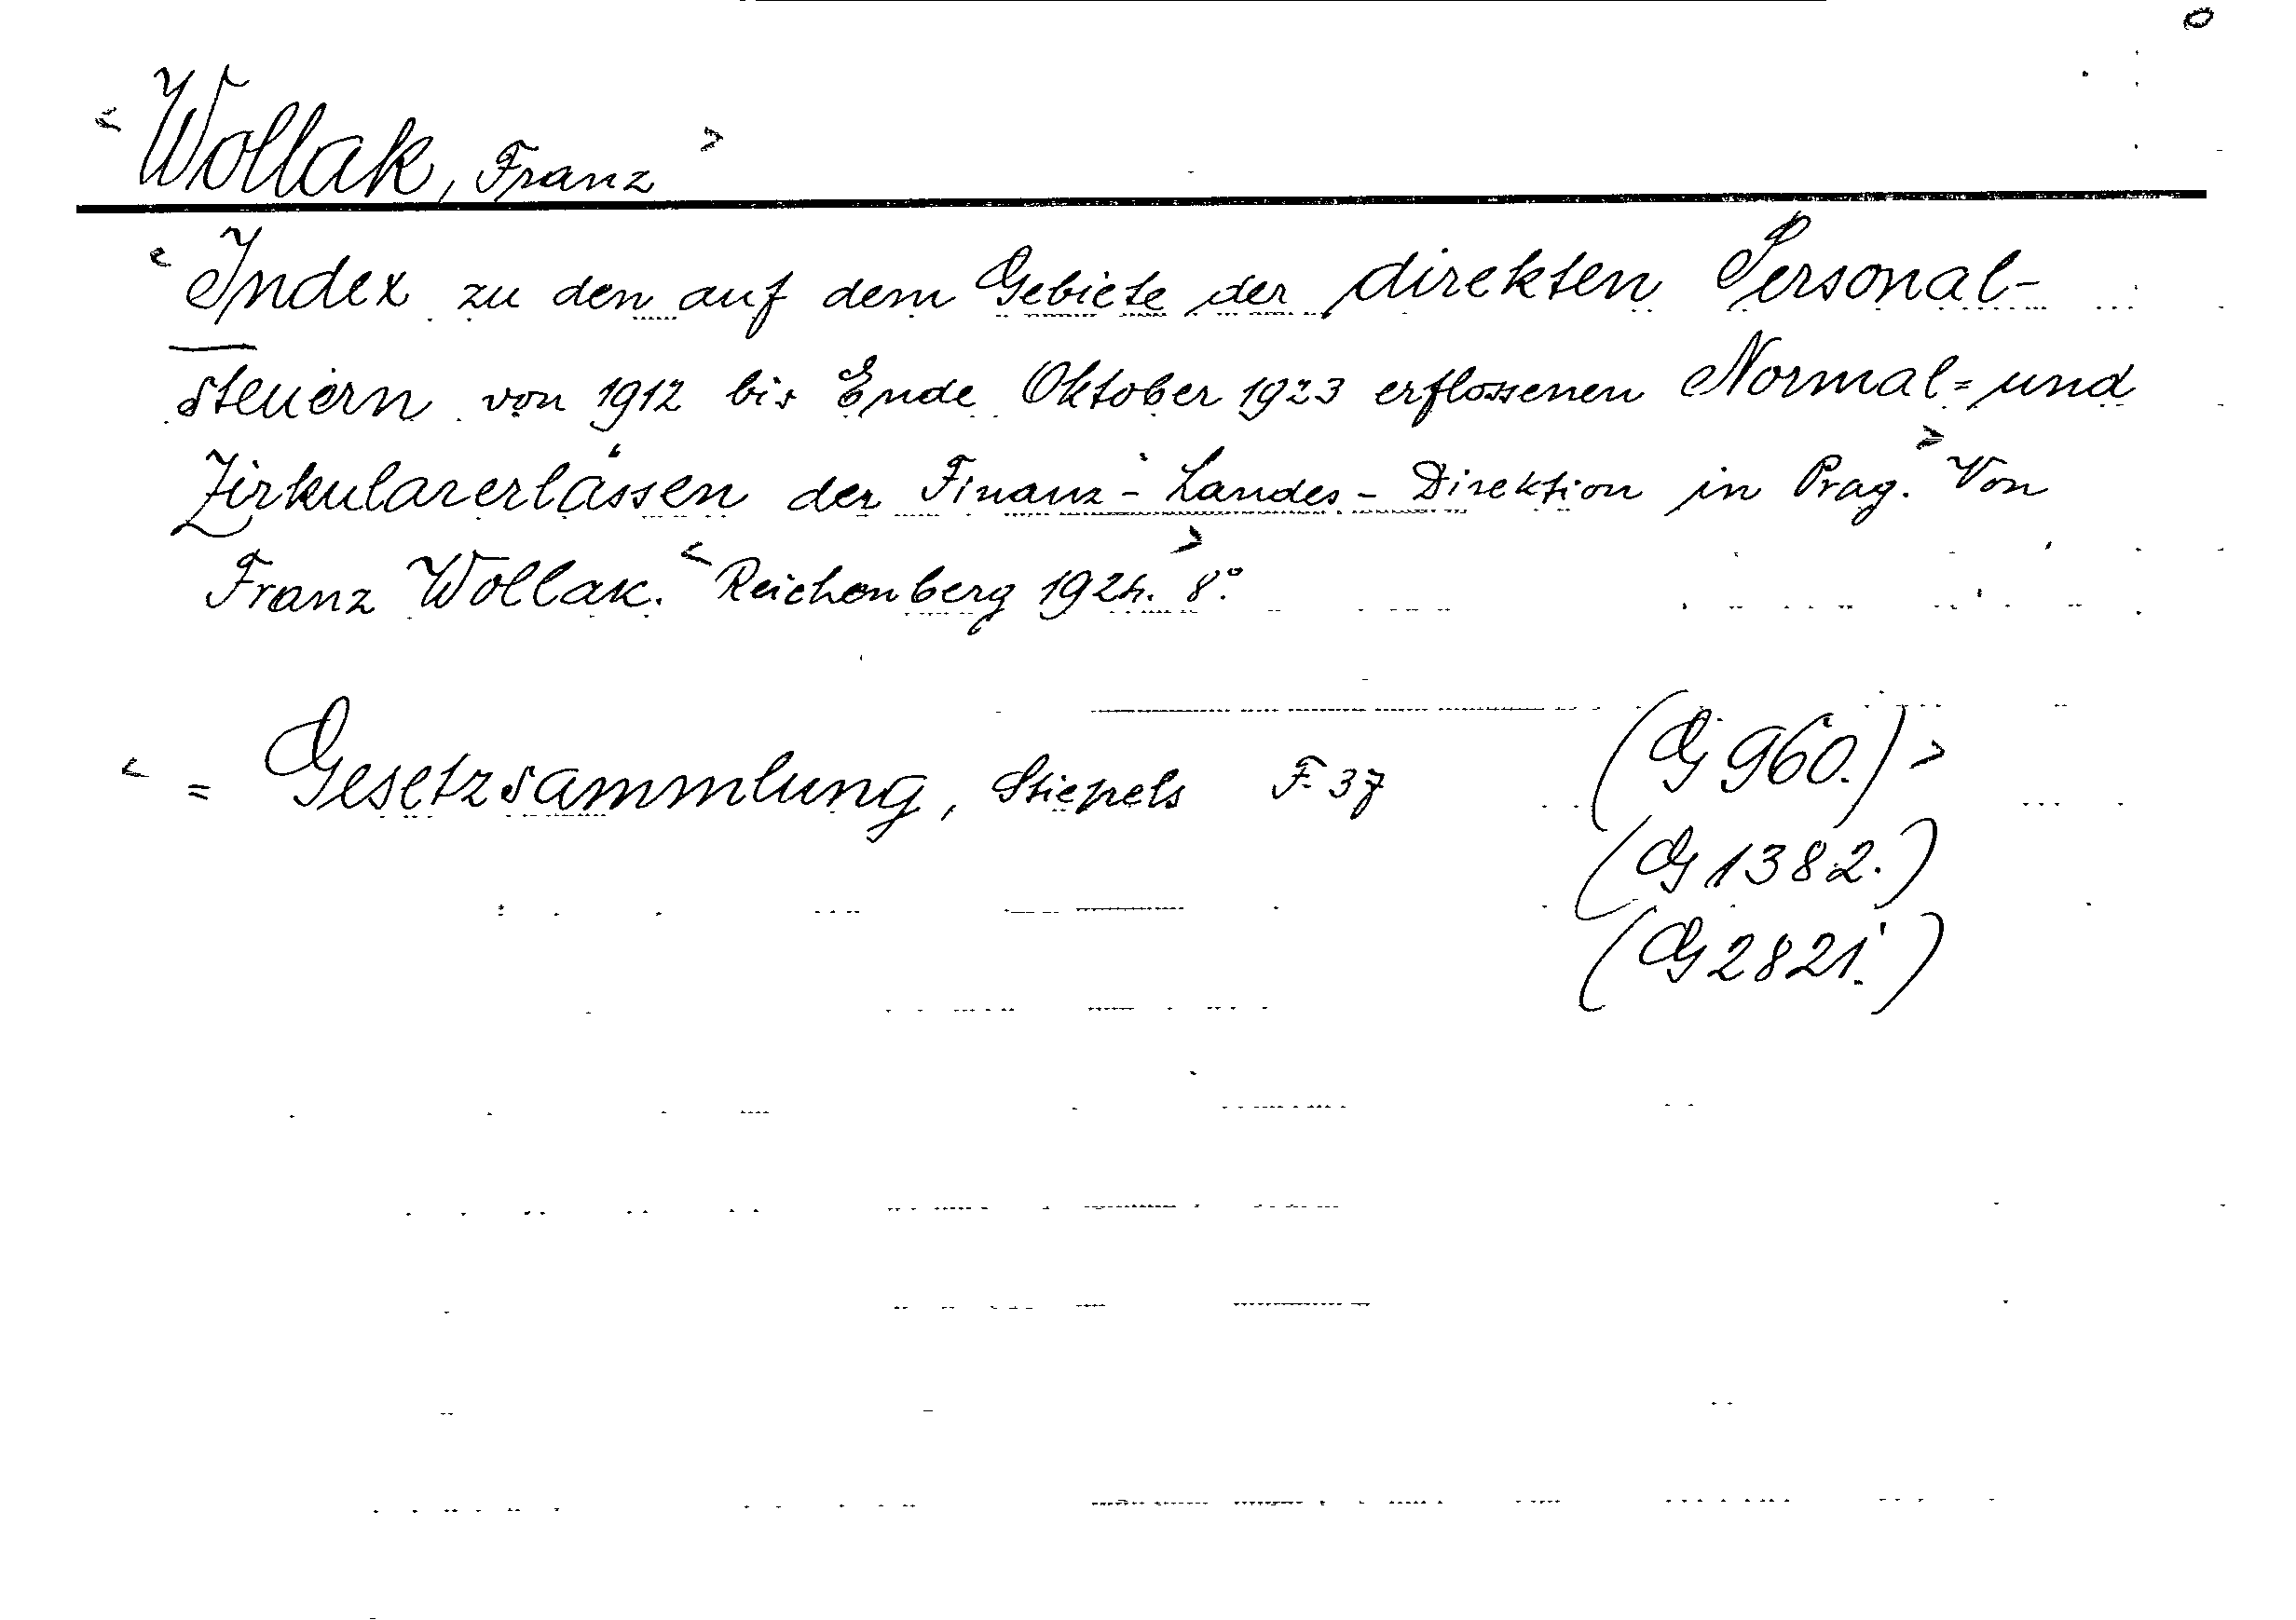 < Wollak, Franz >
< Index zu den auf dem Gebiete der direkten Personal-
steuern von 1912 bis Ende Oktober 1923 erflossenen Normal= und
Zirkularerlässen der Finanz-Landes-Direktion in Prag. > Von
Franz Wollak. < Reichenberg 1924. > 8°
< = Gesetzsammlung, Stiepels F. 37 (G 960.) >
(G 1382.)
(G 2821.)